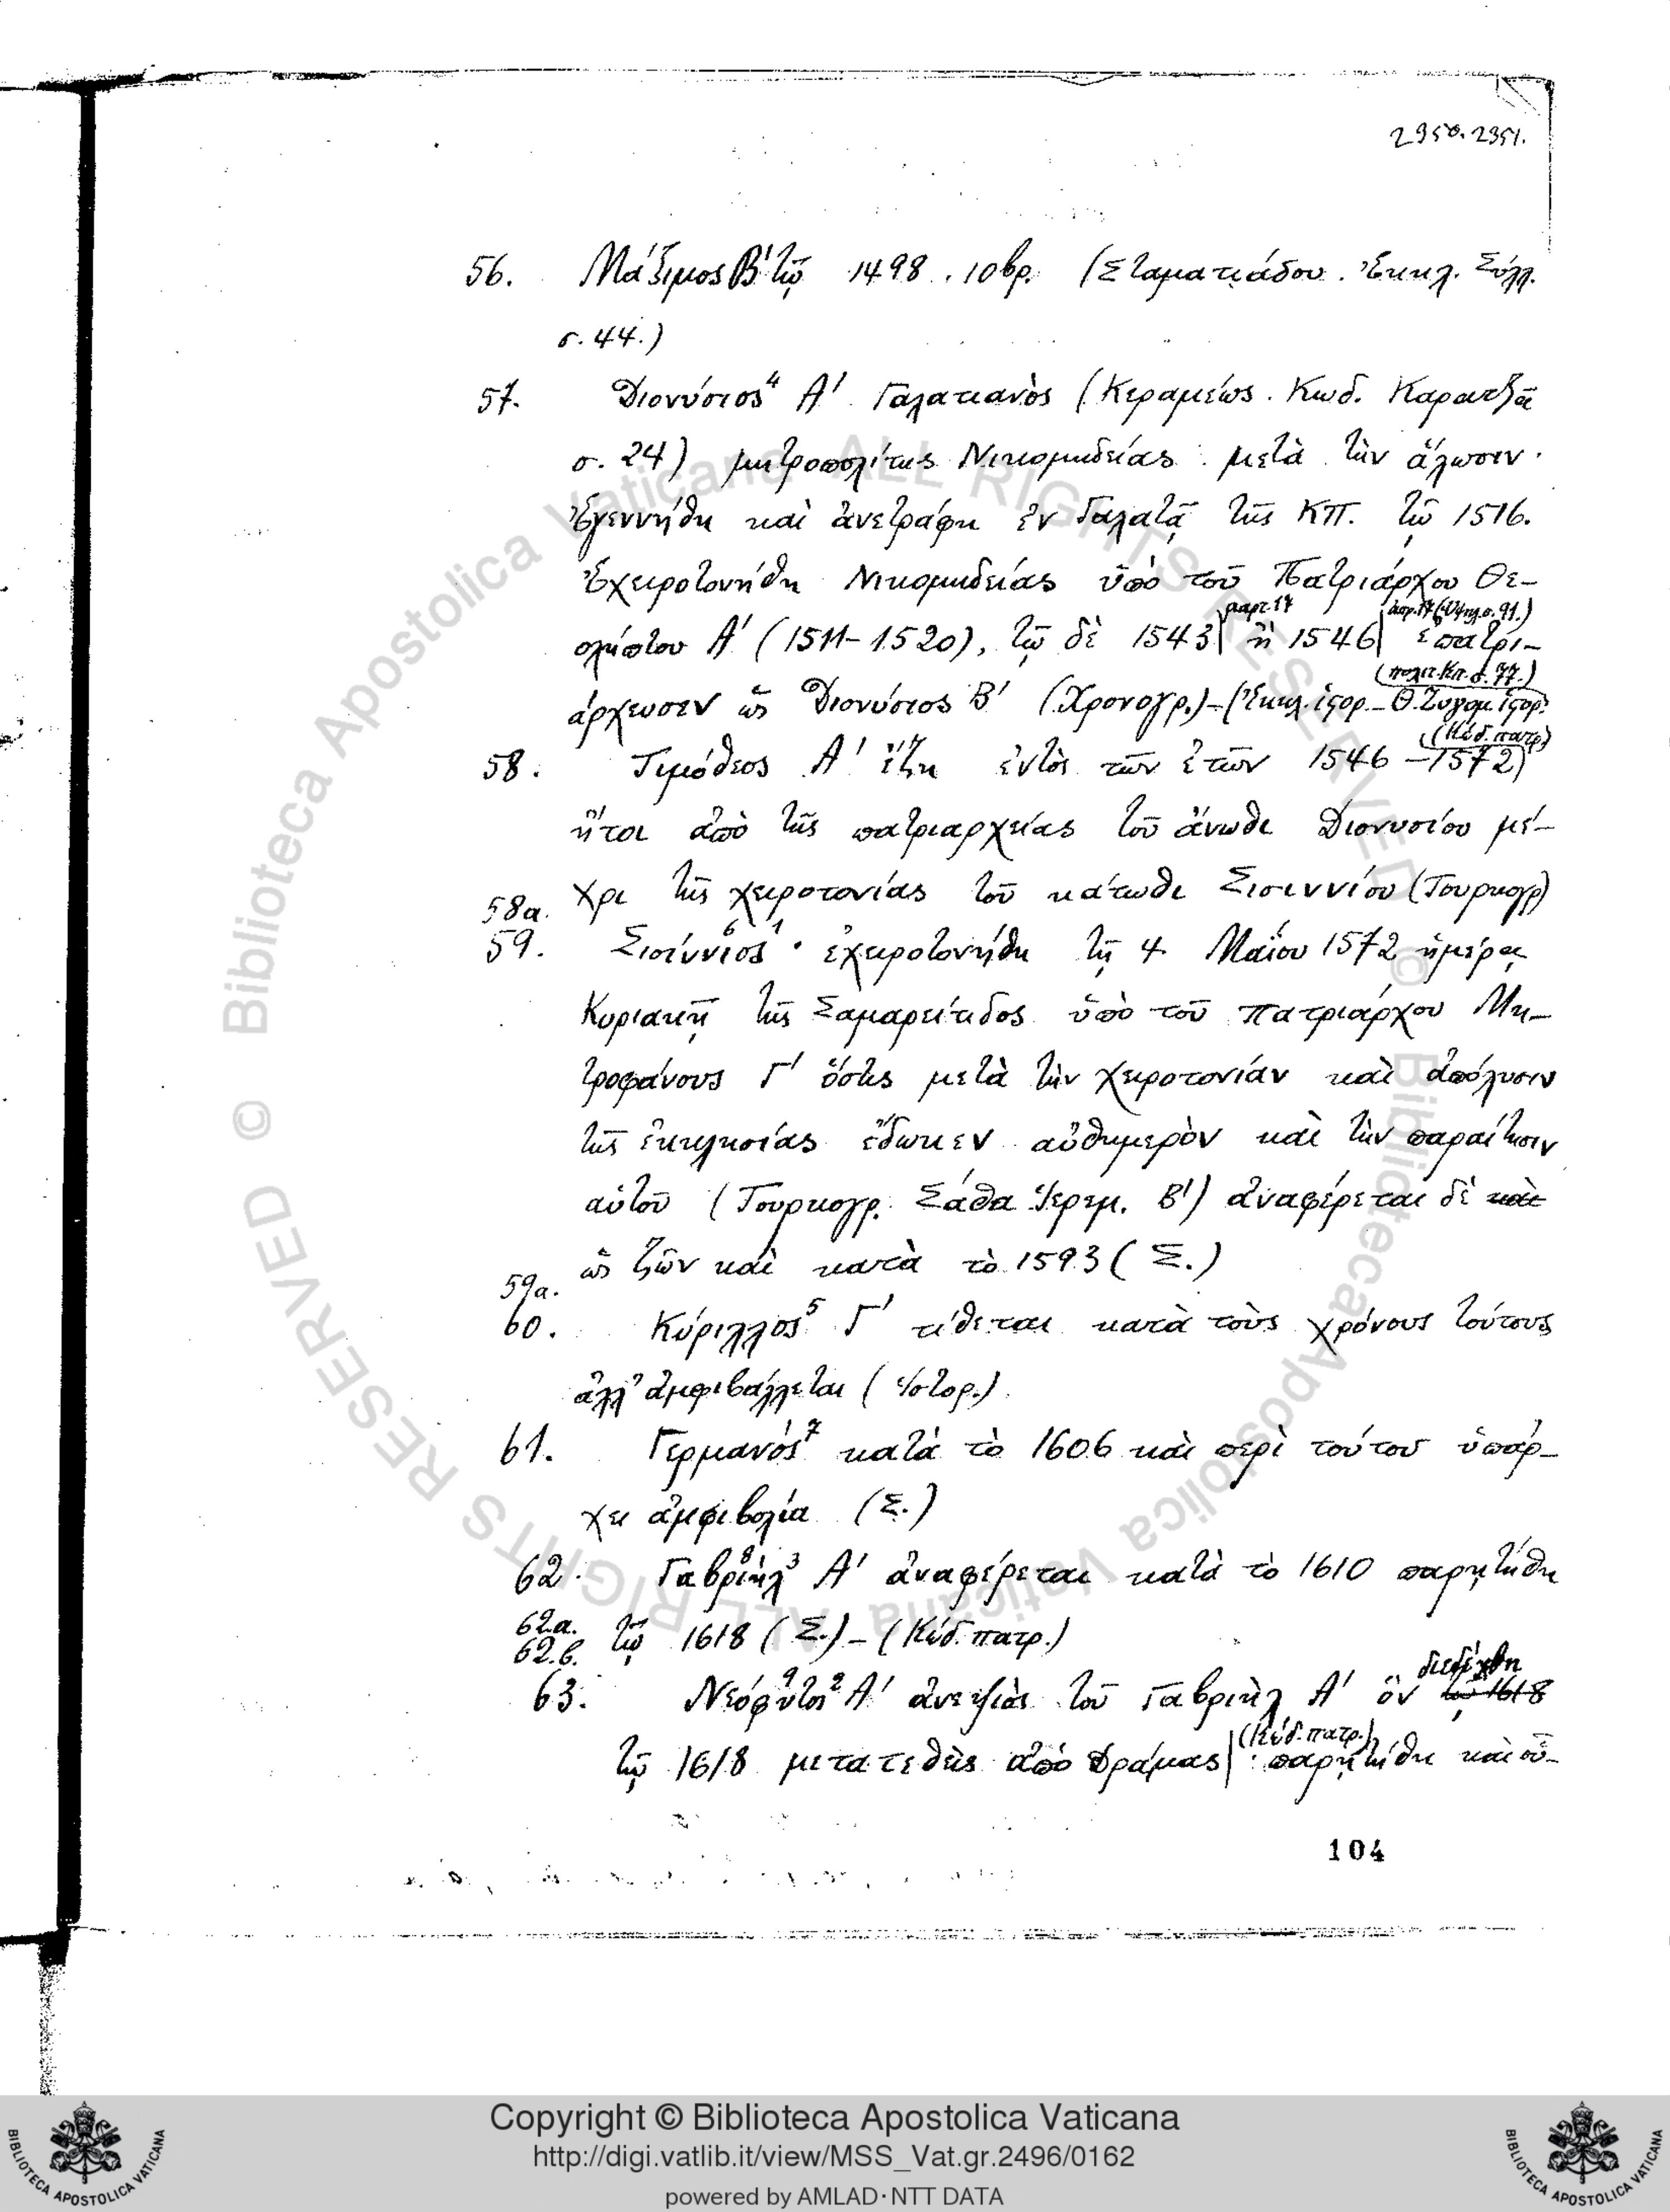 2950.2351.
56. Μάξιμος Β' τῷ 1498. 10βρ. (Σταματιάδου. Ἐκκλ. Σύλλ.
σ. 44.)
57. Διονύσιος⁴ Α' Γαλατιανὸς (Κεραμέως. Κωδ. Καρατζᾶ
σ. 24) μητροπολίτης Νικομηδείας μετὰ τὴν ἅλωσιν.
Ἐγεννήθη καὶ ἀνετράφη ἐν Γαλατᾷ τῆς ΚΠ. τῷ 1516.
Ἐχειροτονήθη Νικομηδείας ὑπὸ τοῦ Πατριάρχου Θε-
μαρτ. 17 ἀπρ. 17 (Ὑψηλ. σ. 91.)
ολήπτου Α' (1511-1520), τῷ δὲ 1543 ἢ 1546 ἐπατρι-
(πολιτ. Κπ. σ. 77.)
άρχευσεν ὡς Διονύσιος Β' (Χρονογρ.)-(Ἐκκλ. ἱστορ.-Θ. Ζυγομ. ἱστορ.
(Κώδ. πατρ.)
58. Τιμόθεος Α' ἔζη ἐντὸς τῶν ἐτῶν 1546-1572)
ἤτοι ἀπὸ τῆς πατριαρχείας τοῦ ἄνωθι Διονυσίου μέ-
58α. χρι τῆς χειροτονίας τοῦ κάτωθι Σισιννίου (Τουρκογρ)
59. Σισίννιος⁶ ¹· ἐχειροτονήθη τῇ 4 Μαΐου 1572 ἡμέρᾳ
Κυριακῇ τῆς Σαμαρείτιδος ὑπὸ τοῦ Πατριάρχου Μη-
τροφάνους Γ' ὅστις μετὰ τὴν χειροτονίαν καὶ ἀπόλυσιν
τῆς ἐκκλησίας ἔδωκεν αὐθημερὸν καὶ τὴν παραίτησιν
αὐτοῦ (Τουρκογρ. Σάθα Ἱερεμ. Β') ἀναφέρεται δὲ καὶ
ὡς ζῶν καὶ κατὰ τὸ 1593 (Σ.)
59α.
60. Κύριλλος⁵ Γ' τίθεται κατὰ τοὺς χρόνους τούτους
ἀλλ' ἀμφιβάλλεται (Ἱστορ.)
61. Γερμανός⁷ κατὰ τὸ 1606 καὶ περὶ τούτου ὑπάρ-
χει ἀμφιβολία (Σ.)
62. Γαβριὴλ⁸ ³ Α' ἀναφέρεται κατὰ τὸ 1610 παρῃτήθη
62.α. τῷ 1618 (Σ.)-(Κώδ. πατρ.)
62.β.
διεδέχθη
63. Νεόφυτος⁹ ² Α' ἀνεψιὸς τοῦ Γαβριὴλ Α' ὃν τῷ 1618
(Κώδ. πατρ.)
τῷ 1618 μετατεθεὶς ἀπὸ Δράμας παρῃτήθη καὶ οὗ-
104
© Biblioteca Apostolica Vaticana ALL RIGHTS RESERVED © Biblioteca Apostolica Vaticana ALL RIGHTS RESERVED
Copyright © Biblioteca Apostolica Vaticana
http://digi.vatlib.it/view/MSS_Vat.gr.2496/0162
powered by AMLAD·NTT DATA
BIBLIOTECA APOSTOLICA VATICANA
BIBLIOTECA APOSTOLICA VATICANA